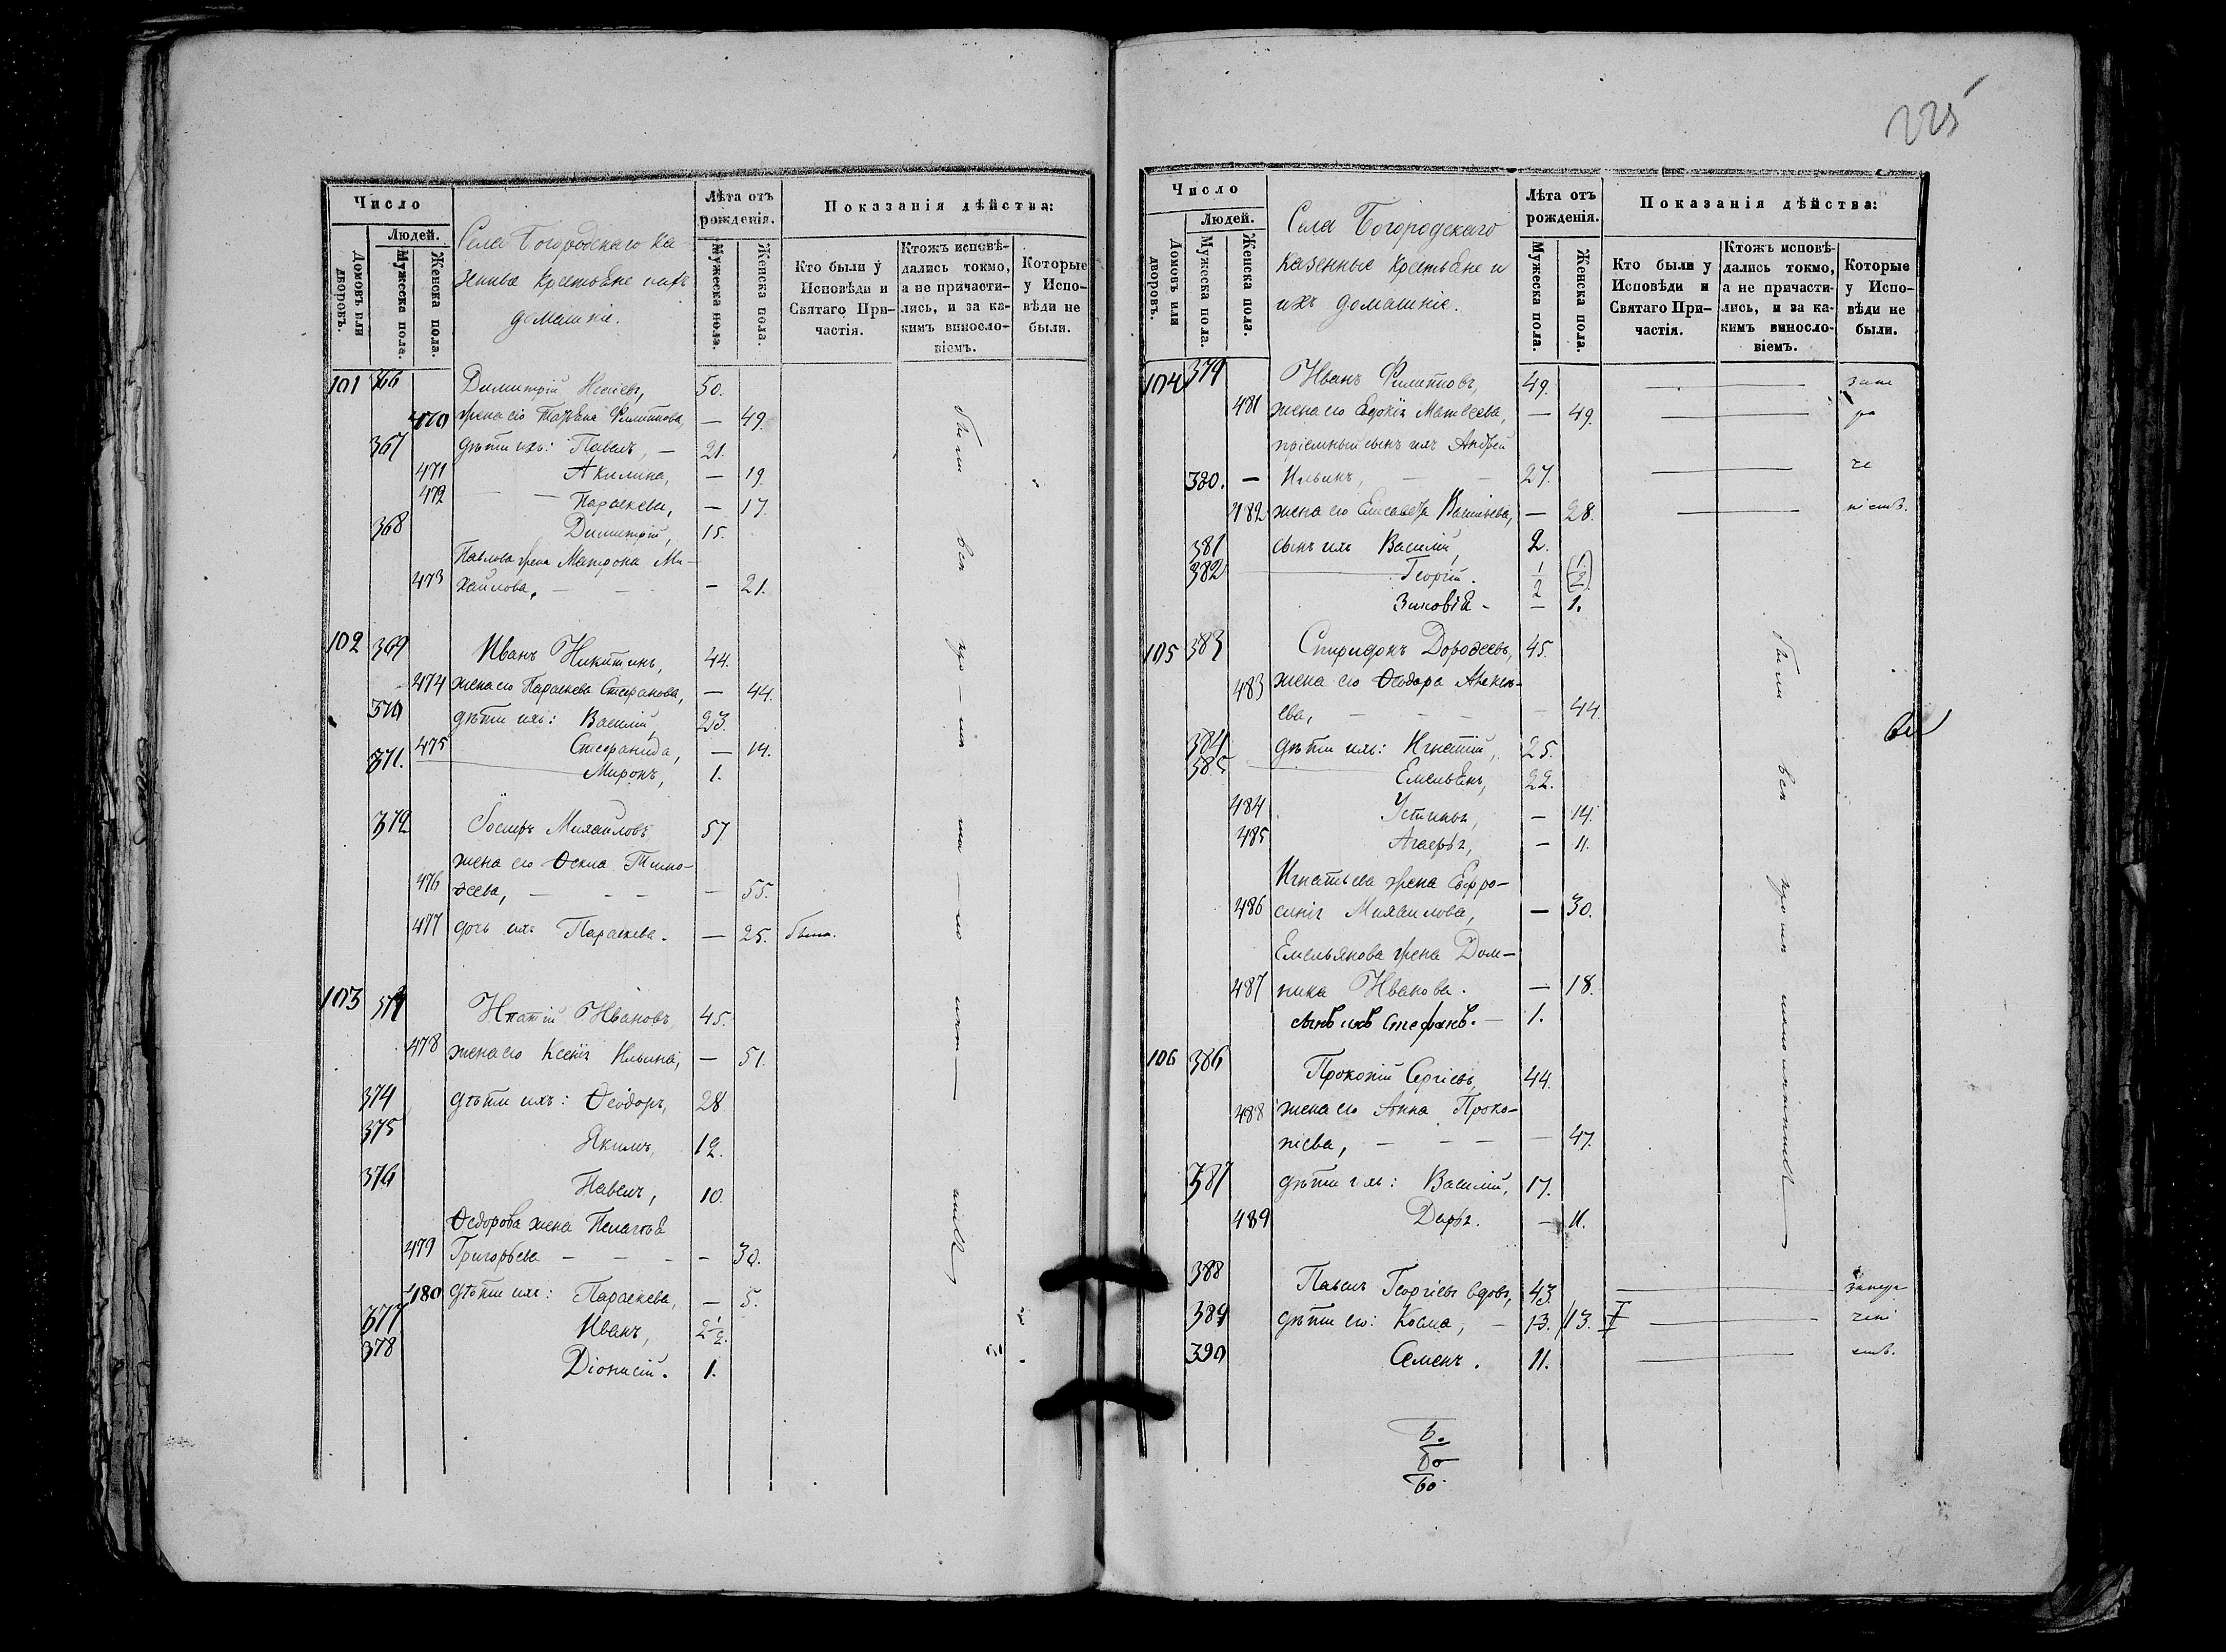 Число
Людей.
Домовъ или дворовъ.
Мужеска пола.
Женска пола.
Села Богородскаго ка-
зенные крестьяне и ихъ
домашніе.
Лѣта отъ
рожденія.
Мужеска пола.
Женска пола.
Показанія дѣйства:
Кто были у
Исповѣди и
Святаго При-
частія.
Ктожъ исповѣ-
дались токмо,
а не причасти-
лись, и за ка-
кимъ винносло-
віемъ.
Которые
у Испо-
вѣди не
были.
101 366 Димитрій 50.
470 жена его Татьяна Филиппова, — 49.
367 дѣти ихъ: Павелъ, — 21.
471 Акилина, — 19.
472 Параскева, — 17.
368 Димитрій, 15.
Павлова жена Матрона Ми-
473 хайлова, — 21.
102 369 Иванъ Никитинъ, 44.
474 жена его Параскева Стефанова, — 44.
370 дѣти ихъ: Василій, 23.
475 Стефанида, — 14.
371. Миронъ, 1.
372 Михайловъ 57
жена его Ѳекла Тимо-
476 ѳеева, — 55.
477 дочь ихъ Параскева. — 25. была.
103 Ипатій Ивановъ, 45.
478 жена его Ксенія Ильина, — 51.
374 дѣти ихъ: Ѳеодоръ, 28
375 Якимъ, 12.
376 Павелъ, 10.
Ѳедорова жена Пелагія
479 Григорьева — 30.
480 дѣти ихъ: Параскева, — 5.
377 Иванъ, 2½.
378 Діонисій. 1.
были вси
225
Число
Людей.
Домовъ или дворовъ.
Мужеска пола.
Женска пола.
Села Богородскаго
казенные крестьяне и
ихъ домашніе.
Лѣта отъ
рожденія.
Мужеска пола.
Женска пола.
Показанія дѣйства:
Кто были у
Исповѣди и
Святаго При-
частія.
Ктожъ исповѣ-
дались токмо,
а не причасти-
лись, и за ка-
кимъ винносло-
віемъ.
Которые
у Испо-
вѣди не
были.
104 379 Иванъ Филипповъ, 49.
481 жена его Евдокія Матвеева, — 49.
пріемный сынъ ихъ Андрей
380. — Ильинъ, 27.
482 жена его Елисавета Васильева, — 28.
381 сынъ ихъ Василій, 2.
382 Георгій. ½ (½)
Зиновія — 1.
105 383 Спиридонъ Дороѳеевъ, 45.
483 жена его Ѳеодора Алексѣ-
ева, — 44.
384 дѣти ихъ: Игнатій, 25.
385 Емельянъ, 22.
484 Устинья, — 14.
485 Агафья, — 11.
Игнатьева жена Евфро-
486 синія Михаилова, — 30.
Емельянова жена Дом-
487 ника Иванова. — 18.
сынъ ихъ Стефанъ. — 1.
106 386 Прокопій Сергіевъ, 44.
488 жена его Анна Проко-
піева, — 47.
387 дѣти ихъ: Василій, 17.
489 Дарья. — 11.
388 Павелъ Георгіевъ вдовъ, 43.
389 дѣти его: Косма, — 13. 13.
390 Семенъ. 11.
были вси